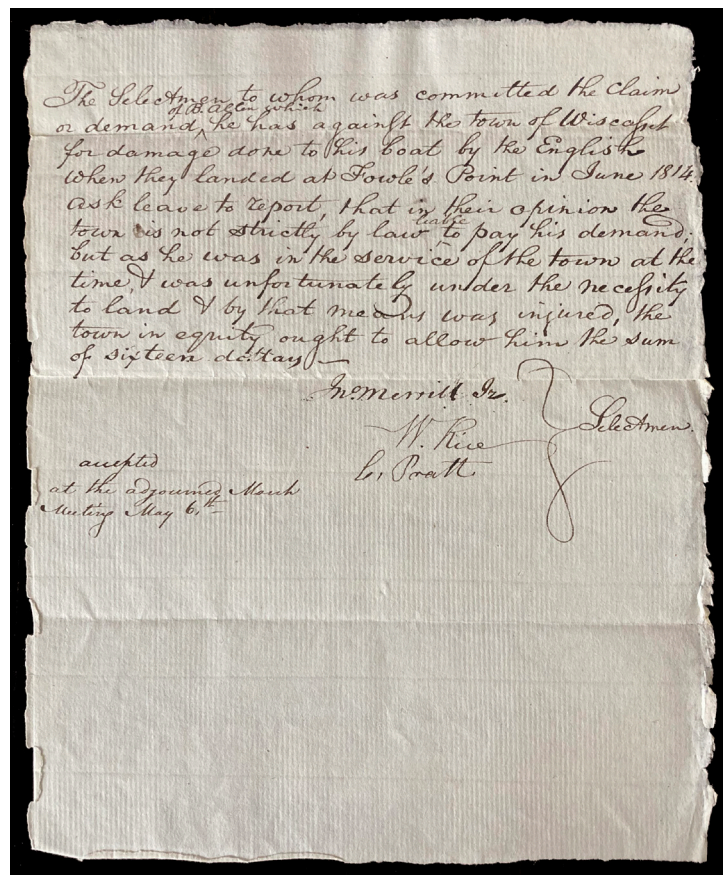 The Selectmen to whom was committed the claim
of B. Allen which
or demand ‸ he has against the town of Wiscasset
for damage done to his boat by the English
when they landed at Fowle's Point in June 1814.
ask leave to report, that in their opinion the
liable
town is not strictly by law ‸ to pay his demand;
but as he was in the service of the town at the
time, & was unfortunately under the necessity
to land & by that means was injured, the
town in equity ought to allow him the sum
of sixteen dollars —
Jno. Merrill Jr.
W. Rice
Selectmen.
Pratt
accepted
at the adjourned March
Meeting May 6.th